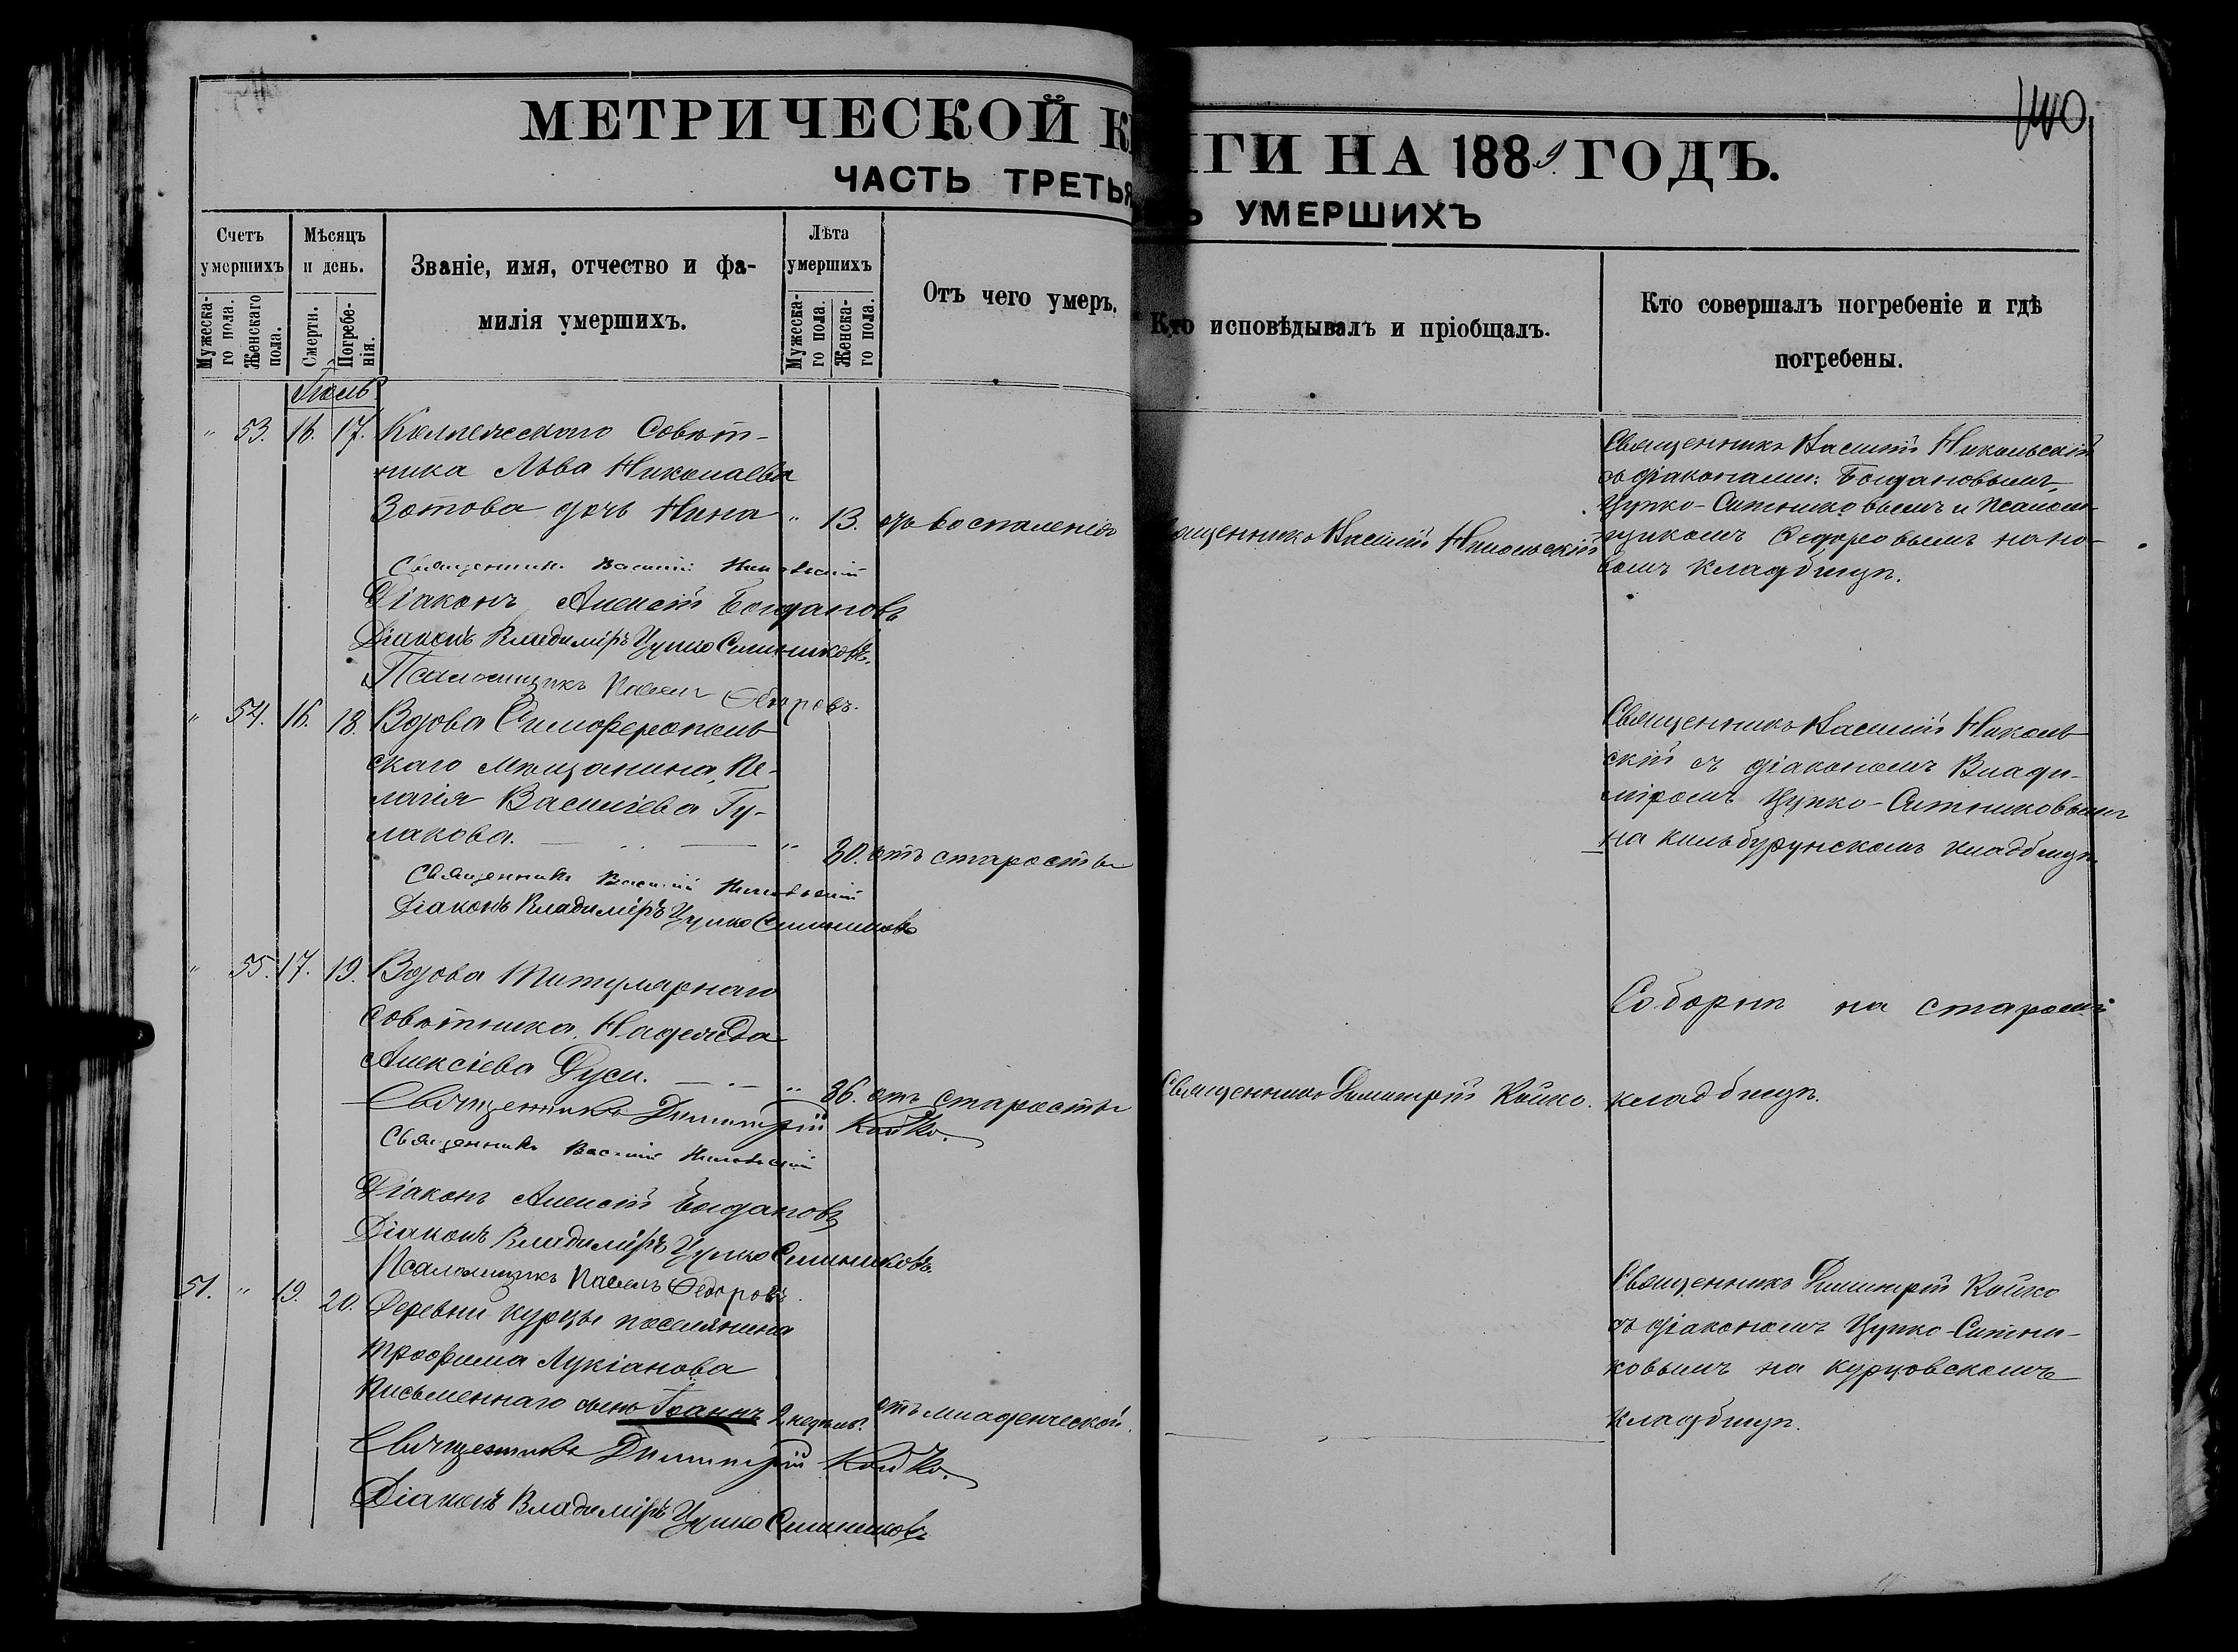 140
МЕТРИЧЕСКОЙ К
ИГИ НА 1889 ГОДЪ.
ЧАСТЬ ТРЕТЬЯ
Ъ УМЕРШИХЪ
Счетъ умершихъ
Мужеска-
го пола.
Женскаго
пола.
Мѣсяцъ
и день.
Смерти.
Погребе-
нія.
Званіе, имя, отчество и фа-
милія умершихъ.
Лѣта
умершихъ
Мужеска-
го пола.
Женска-
го пола.
Отъ чего умеръ.
Кто исповѣдывалъ и пріобщалъ.
Кто совершалъ погребеніе и гдѣ
погребены.
Іюль
" 53. 16. 17. Коллежскаго Совѣт-
ника Льва Николаева
Зотова дочь Нина " 13. отъ воспаленія
Священникъ Василій Никольскій
Діаконъ Алексій Богдановъ
Діаконъ Владиміръ Цупко Ситниковъ.
Псаломщикъ Павелъ Ѳедоровъ.
Священникъ Василій Никольскій
Священникъ Василій Никольскій
съ діаконами: Богдановымъ,
Цупко-Ситниковымъ и псалом-
щикомъ Ѳедоровымъ на но-
вомъ кладбищѣ.
" 54. 16. 18. Вдова Симферополь
скаго мѣщанина, Пе-
лагія Васильева Гу-
лакова. " 80. отъ старости
Священникъ Василій Никольскій
Діаконъ Владиміръ Цупко Ситниковъ
Священникъ Василій Николь
скій съ діакономъ Влади-
міромъ Цупко-Ситниковымъ
на кильбурунскомъ кладбищѣ.
" 55. 17. 19. Вдова Титулярнаго
совѣтника Надежда
Алексіева Дуси. " 86. отъ старости
Священникъ Димитрій Койко.
Священникъ Василій Никольскій
Діаконъ Алексій Богдановъ
Діаконъ Владиміръ Цупко Ситниковъ.
Псаломщикъ Павелъ Ѳедоровъ.
Священникъ Димитрій Койко.
Соборнѣ на старомъ
кладбищѣ.
51. " 19. 20. Деревни Курцы поселянина
Трофима Лукіанова
Письменнаго сынъ Іоаннъ 2 недѣль. отъ младенческой.
Священникъ Димитрій Койко.
Діаконъ Владиміръ Цупко Ситниковъ
Священникъ Димитрій Койко
съ діакономъ Цупко-Ситни-
ковымъ на курцовскомъ
кладбищѣ.